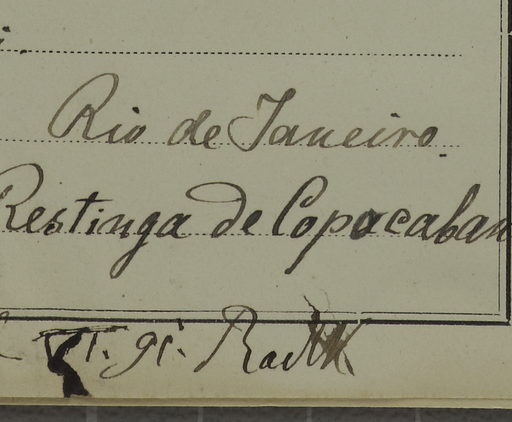 Rio de Janeiro.
Restinga de Copacaban
VI. 91. Radlk